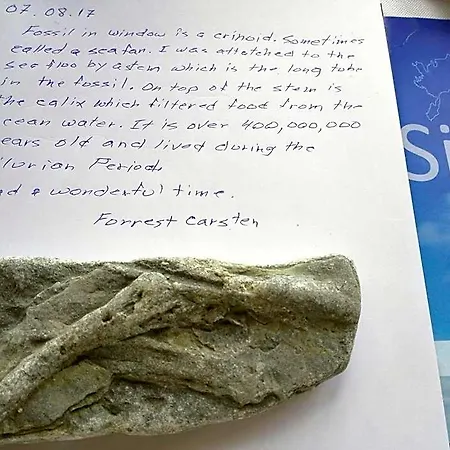 07.08.17
Fossil in window is a crinoid. Sometimes
called a seafan. I was attatched to the
sea floo by a stem which is the long tube
in the fossil. On top of the stem is
the calix which filtered food from the
cean water. It is over 400,000,000
ears old and lived during the
ilurian Period.
ad a wonderful time.
Forrest Carsten
Si